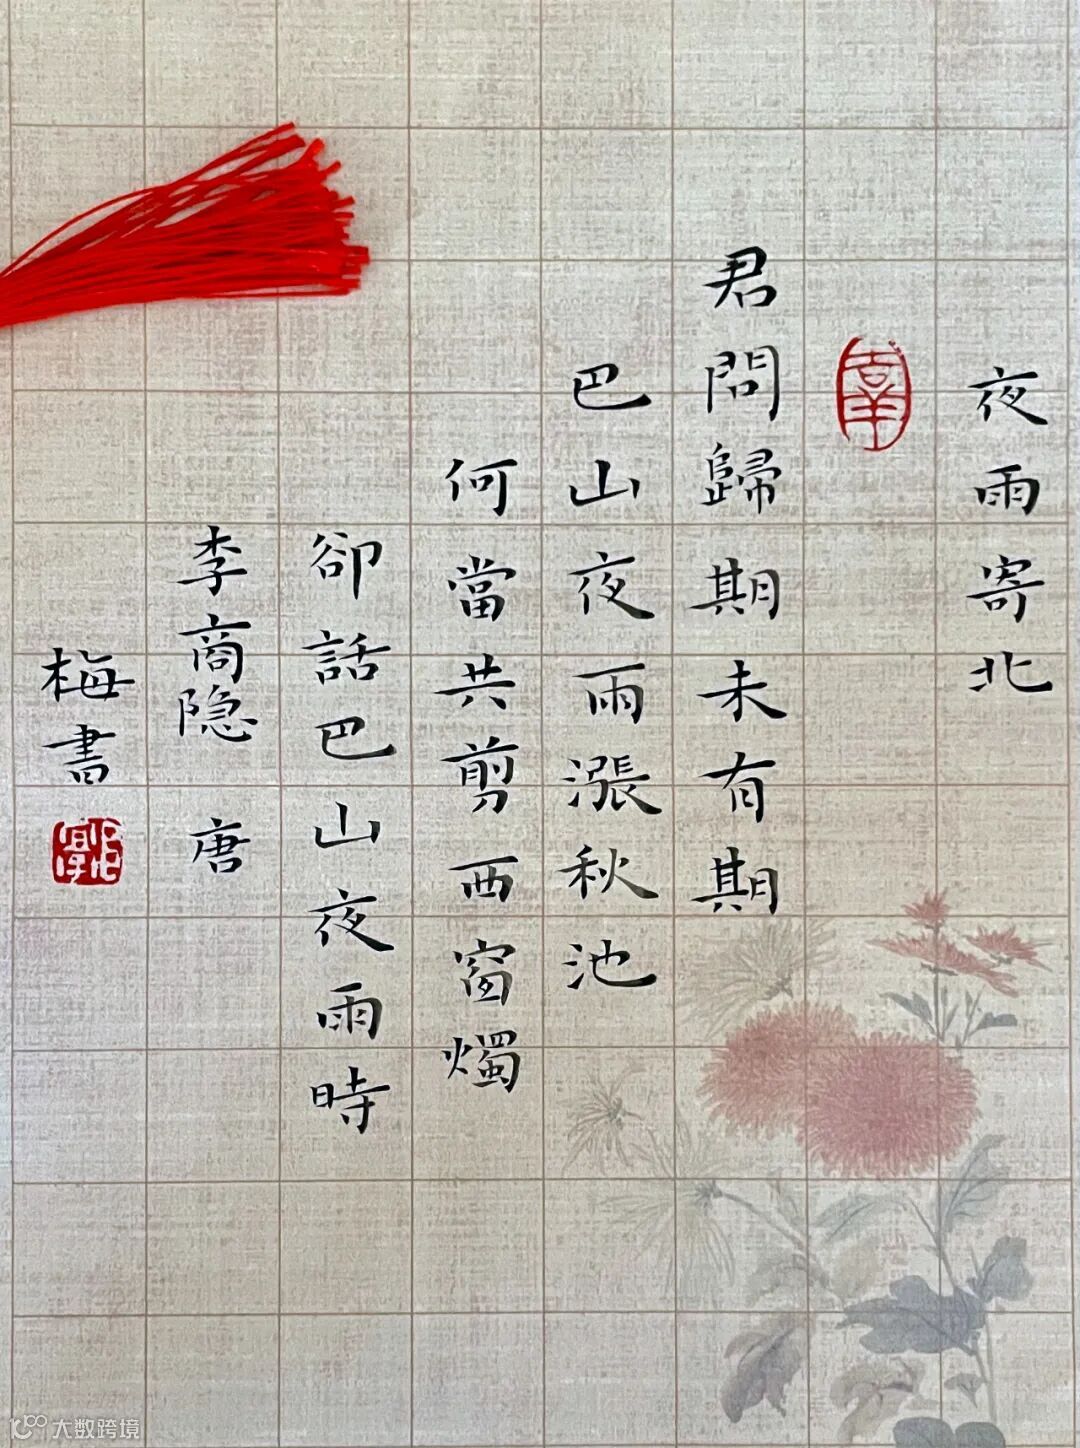 夜雨寄北
君問歸期未有期
巴山夜雨漲秋池
何當共剪西窗燭
卻話巴山夜雨時
李商隐 唐
梅書
大数跨境